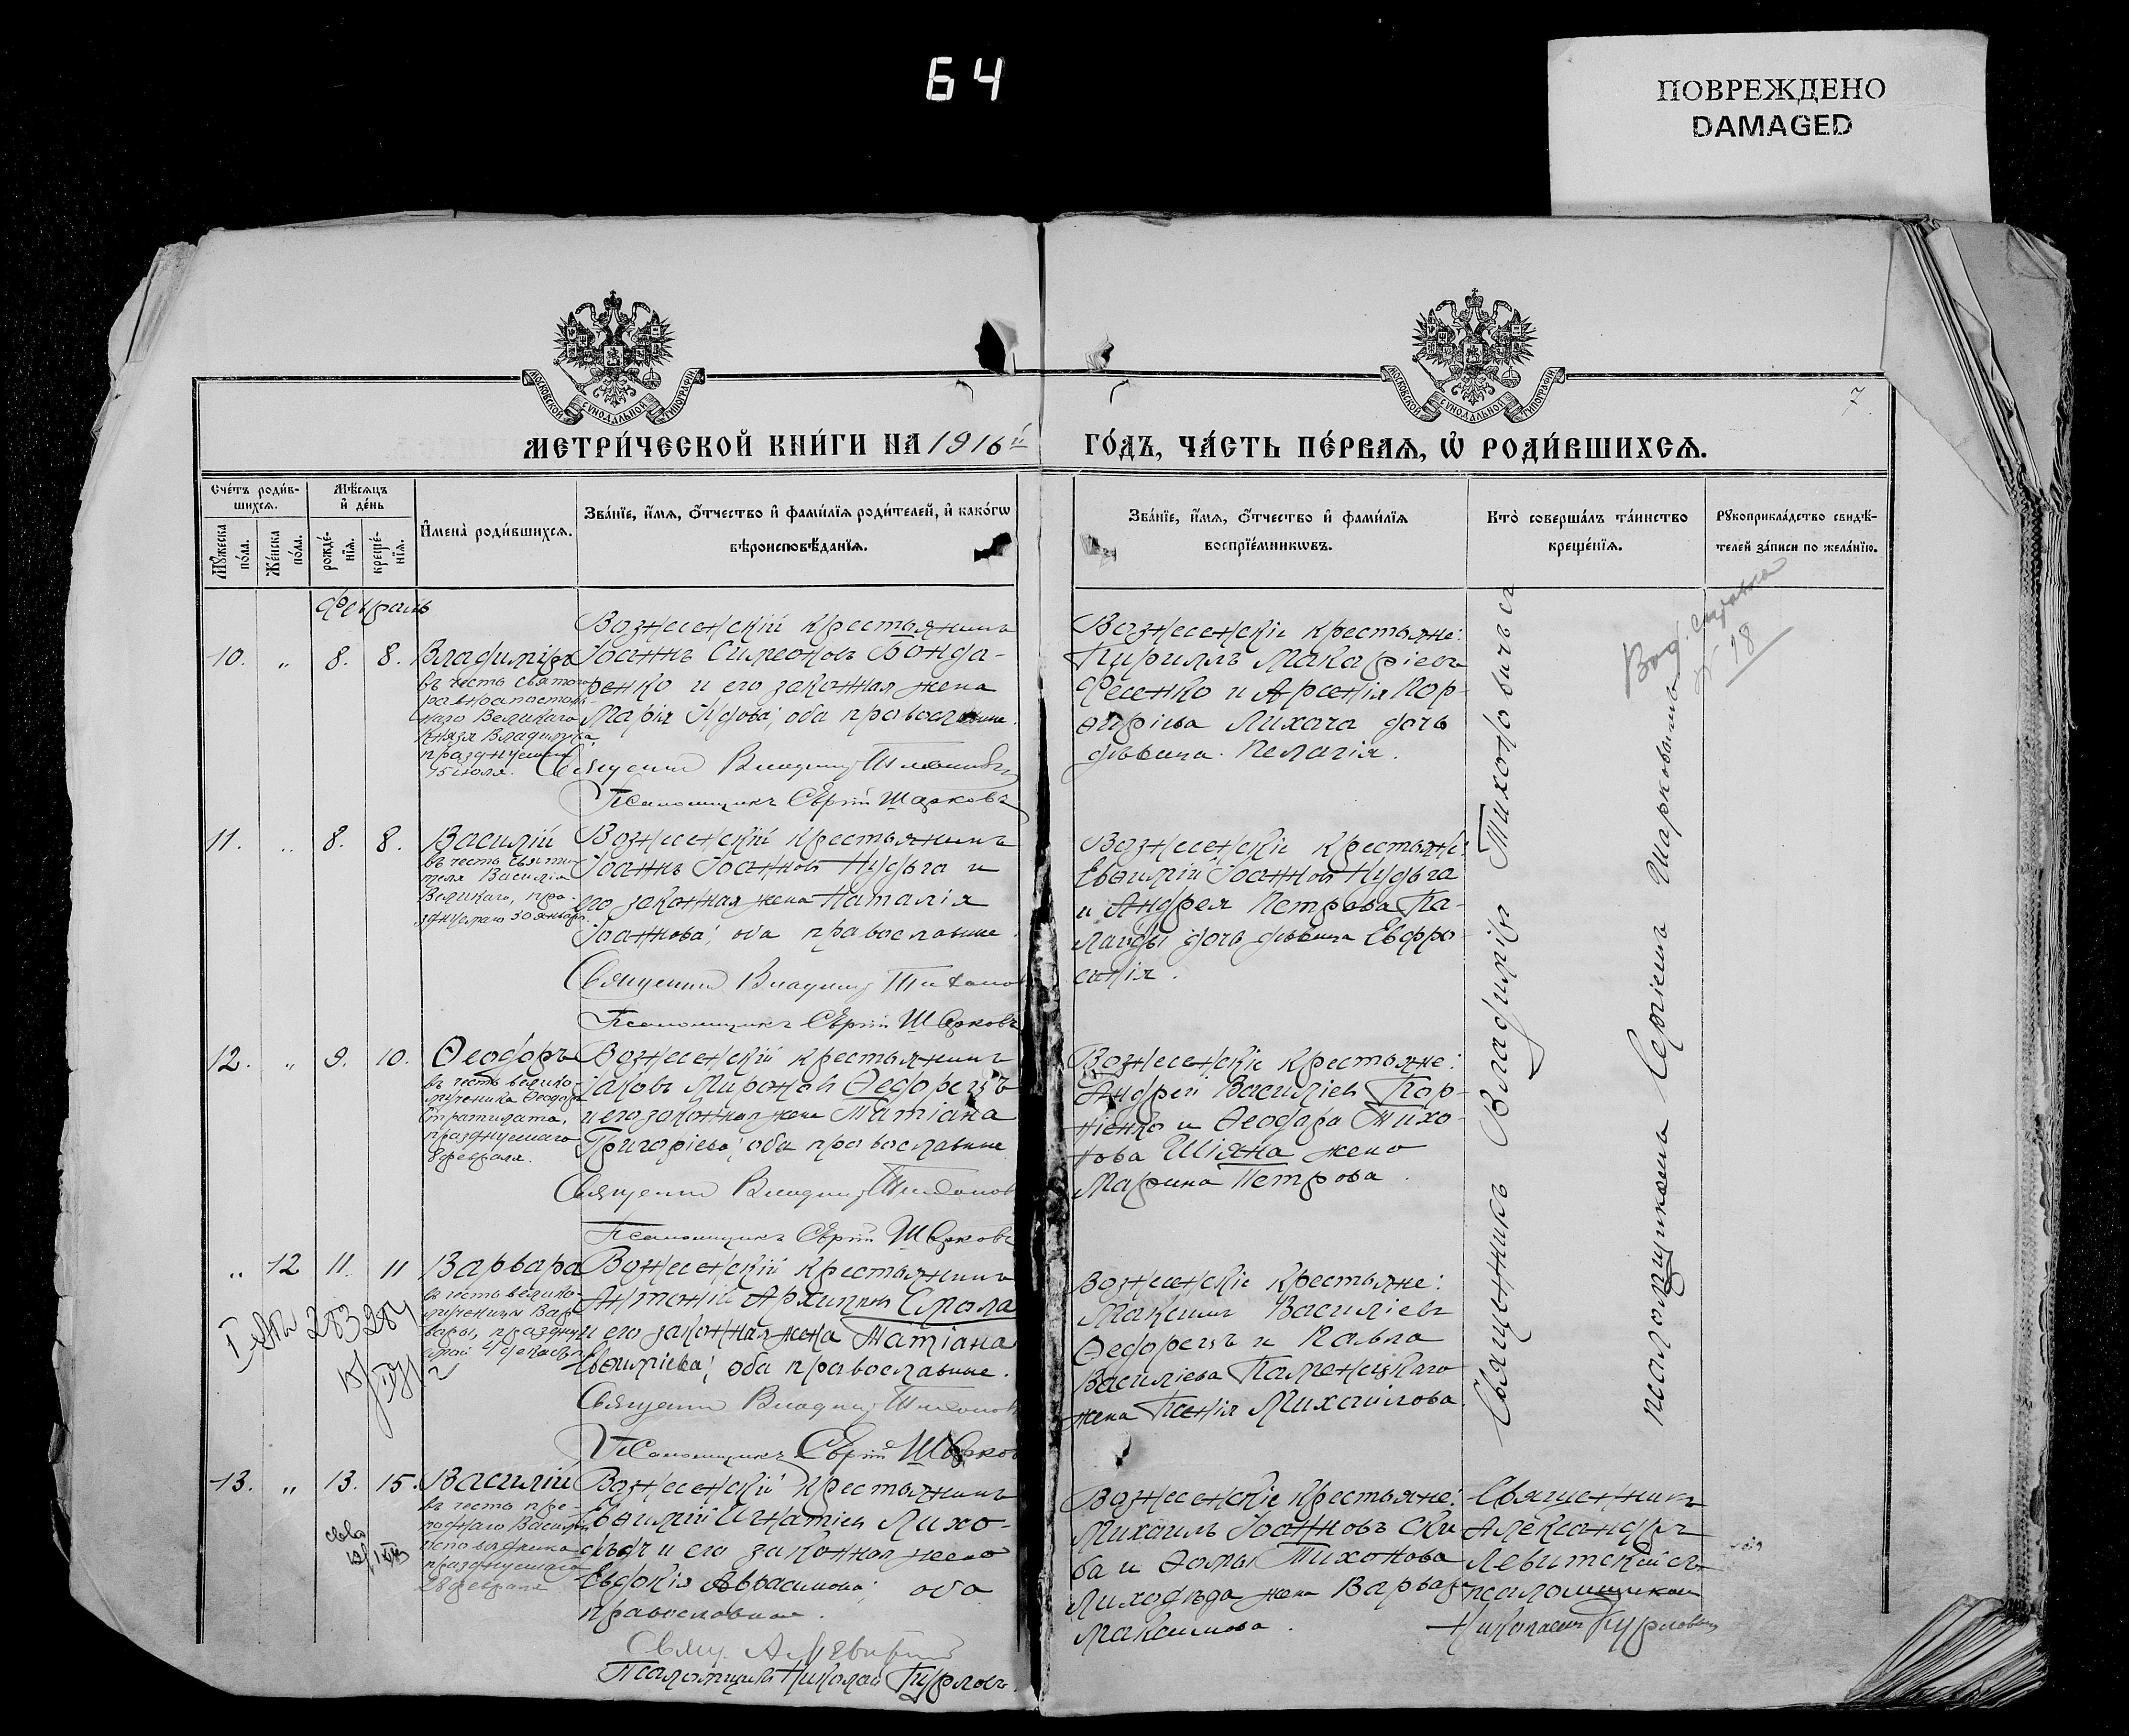 64
ПОВРЕЖДЕНО
DAMAGED
7
МОСКОВСКОЙ СѴНОДАЛЬНОЙ ТИПОГРАФІИ
МОСКОВСКОЙ СѴНОДАЛЬНОЙ ТИПОГРАФІИ
МЕТРИ́ЧЕСКОЙ КНИ́ГИ НА 1916й
ГО́ДЪ, ЧА́СТЬ ПЕ́РВАѦ, Ѡ҆ РОДИ́ВШИХСѦ.
Сче́тъ роди́в-
шихсѧ.
Мꙋ́жеска
по́ла.
Же́нска
по́ла.
Мѣ́сѧцъ
и҆ де́нь
рожде́-
нїѧ.
креще́-
нїѧ.
И҆мена̀ роди́вшихсѧ.
Зва́нїе, и҆́мѧ, ѻ҆́тчество и҆ фами́лїѧ роди́телей, и҆ како́гѡ
вѣроисповѣ́данїѧ.
Зва́нїе, и҆́мѧ, ѻ҆́тчество и҆ фами́лїѧ
воспрїе́мникѡвъ.
Кто̀ соверша́лъ та́инство
креще́нїѧ.
Рꙋкоприкла́дство свидѣ́-
телей за́писи по жела́нїю.
Февраль
10. „ 8. 8.
Владиміръ
въ честь святого
равноапостоль-
наго Великаго
Князя Владиміра,
празднуемаго
15 іюля.
Вознесенскій крестьянинъ
Іоаннъ Симеоновъ Бонда-
ренко и его законная жена
Марія Іудова; оба православные.
Священникъ Владиміръ Тихоновичъ
Псаломщикъ Сергій Шарковъ
Вознесенскіе крестьяне:
Кириллъ Макаріевъ
Фесенко и Арсенія Пор-
фиріева Лихача дочь
дѣвица Пелагія.
11. „ 8. 8.
Василій
въ честь святи-
теля Василія
Великаго, пра-
зднуемаго 30 января.
Вознесенскій крестьянинъ
Іоаннъ Іоанновъ Нудьга и
его законная жена Наталія
Іоаннова; оба православные.
Священникъ Владиміръ Тихонов
Псаломщикъ Сергій Шарковъ
Вознесенскіе крестьяне:
Евѳимій Іоанновъ Нудьга
и Андрея Петрова Па-
ланды дочь дѣвица Евфро-
синія.
12. „ 9. 10.
Ѳеодоръ
въ честь велико-
мученика Ѳеодора
Стратилата,
празднуемаго
8 февраля.
Вознесенскій крестьянинъ
Іаковъ Мироновъ Ѳедорецъ
и его законная жена Татіана
Григоріева; оба православные
Священникъ Владиміръ Тихонов
Псаломщикъ Сергій Шарковъ
Вознесенскіе крестьяне:
Андрей Василіевъ Кор-
ніенко и Ѳеодора Тихо-
нова Шіяна жена
Марина Петрова.
„ 12 11. 11
Варвара
въ честь велико-
мученицы Вар-
вары, праздну-
емой 4 декабря
Вознесенскій крестьянинъ
Антоній Архиповъ Смола
и его законная жена Татіана
Евѳиміева; оба православные.
Священникъ Владиміръ Тихонов
Псаломщикъ Сергій Шарков
Вознесенскіе крестьяне:
Максимъ Василіевъ
Ѳедорецъ и Павла
Василіева Каменецкаго
жена Ксенія Михаилова.
13. „ 13. 15.
Василій
въ честь пре-
подобнаго Василія
исповѣдника
празднуемаго
28 февраля
Вознесенскій крестьянинъ
Евѳимій Игнатіевъ Лихо-
дѣдъ и его законная жена
Евдокія Аврамова; оба
православные.
Свящ. А. Левитскій
Псаломщикъ Николай Курловъ.
Вознесенскіе крестьяне:
Михаилъ Іоанновъ Ски-
ба и Ѳомы Тихонова
Лиходѣда жена Варвара
Максимова.
Священникъ
Александръ
Левитскій съ
псаломщикомъ
Николаемъ Курловымъ
Священникъ Владиміръ Тихоновичъ съ
псаломщикомъ Сергіемъ Шарковымъ
Выд. справка
№ 18